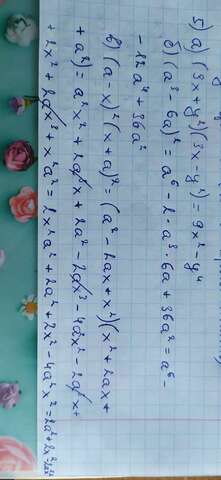 5) а) (3x + y²)(3x - y²) = 9x² - y⁴
б) (a³ - 6a)² = a⁶ - 2 · a³ · 6a + 36a² = a⁶ -
- 12a⁴ + 36a²
в) (a - x)² (x + a)² = (a² - 2ax + x²)(x² + 2ax +
+ a²) = a²x² + 2ax + 2a² - 2ax³ - 4ax² - 2ax +
+ 2x² + 2ax³ + x²a² = 2x²a² + 2a² + 2x² - 4a²x² = 2a² + 2x² - 2a²x²